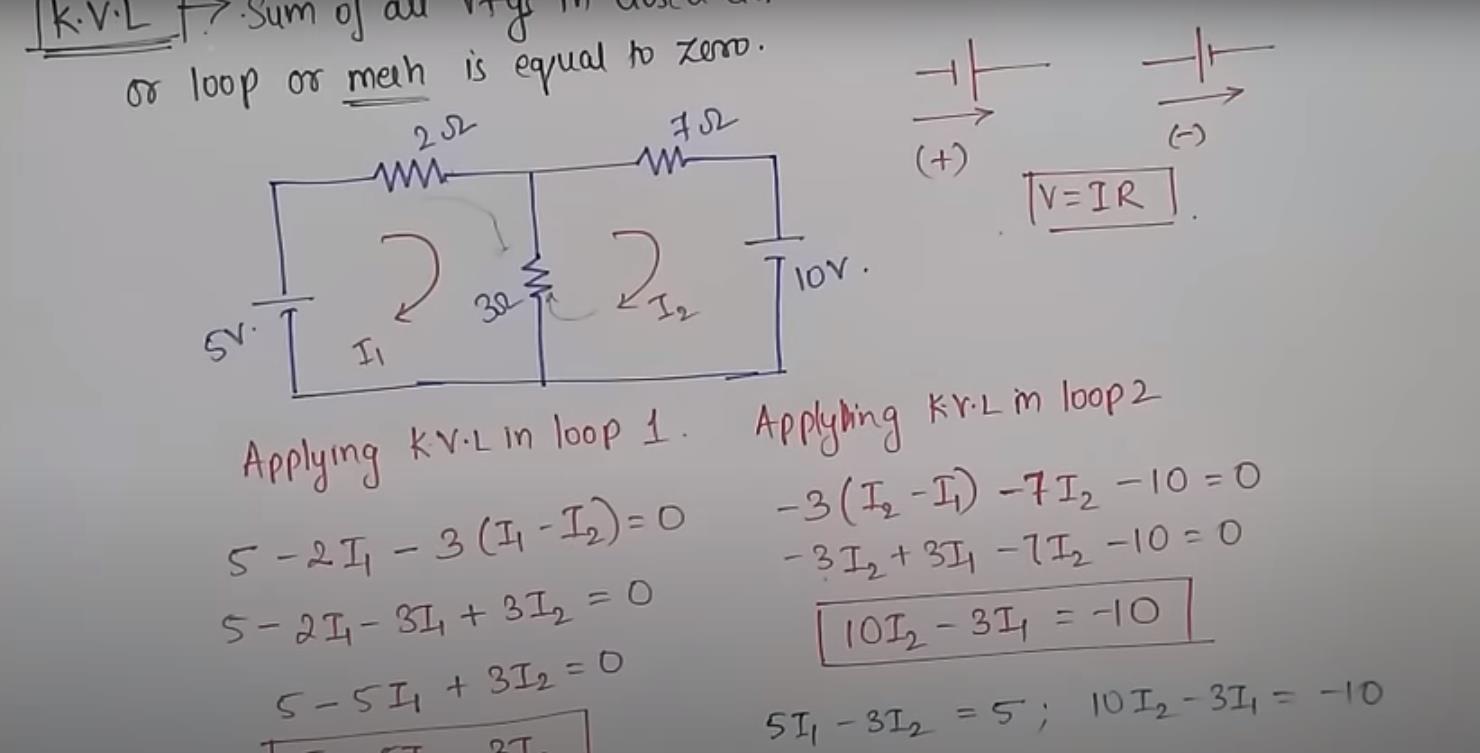 K.V.L → Sum of all in
or loop or mesh is equal to zero.
2Ω
7Ω
(+)
(-)
V = IR
5V.
I₁
3Ω
I₂
10V.
Applying K.V.L in loop 1.
5 - 2I₁ - 3(I₁ - I₂) = 0
5 - 2I₁ - 3I₁ + 3I₂ = 0
5 - 5I₁ + 3I₂ = 0
Applyling K.V.L in loop 2
-3(I₂ - I₁) - 7I₂ - 10 = 0
-3I₂ + 3I₁ - 7I₂ - 10 = 0
10I₂ - 3I₁ = -10
5I₁ - 3I₂ = 5 ; 10I₂ - 3I₁ = -10